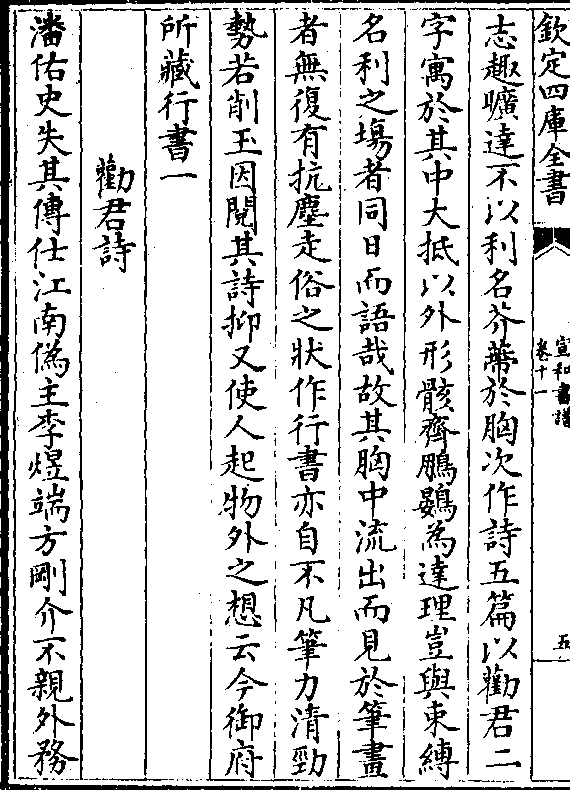 欽定四庫全書
宣和書譜
卷十一
五
志趣曠達不以利名芥蔕於胸次作詩五篇以勸君二
字寓於其中大抵以外形骸齊鵬鷃為達理豈與束縛
名利之塲者同日而語哉故其胸中流出而見於筆畫
者無復有抗塵走俗之狀作行書亦自不凡筆力清勁
勢若削玉因閱其詩抑又使人起物外之想云今御府
所藏行書一
勸君詩
潘佑史失其傳仕江南偽主李煜端方剛介不親外務